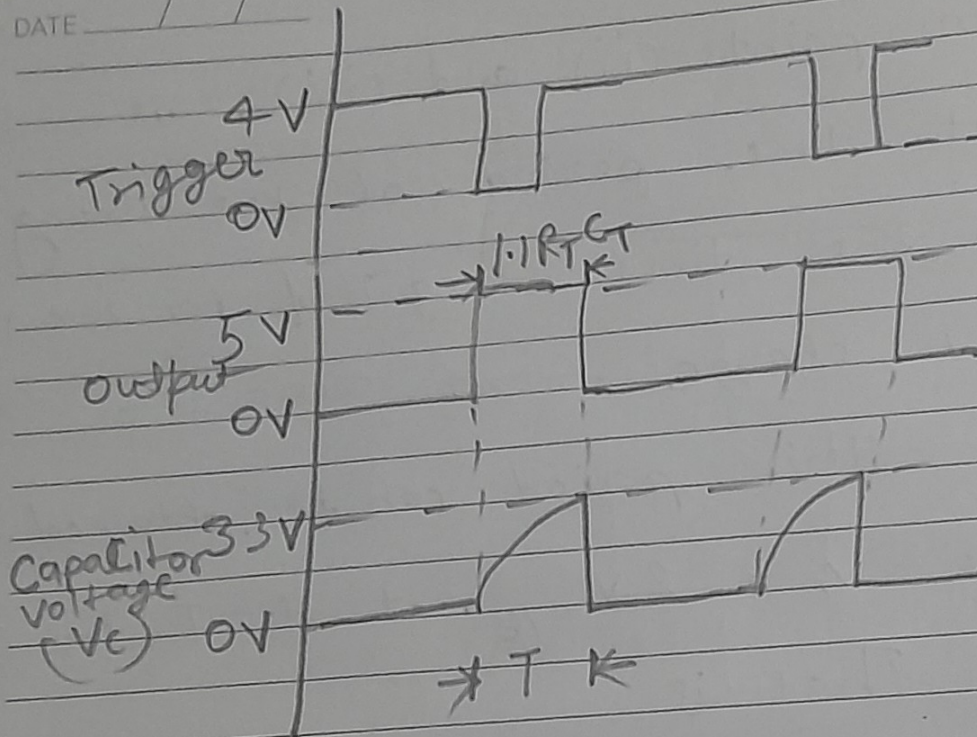 DATE
4V
Trigger
0V
1.1RTCT
5V
Output
0V
Capacitor 33V
Voltage
(Vc) 0V
T